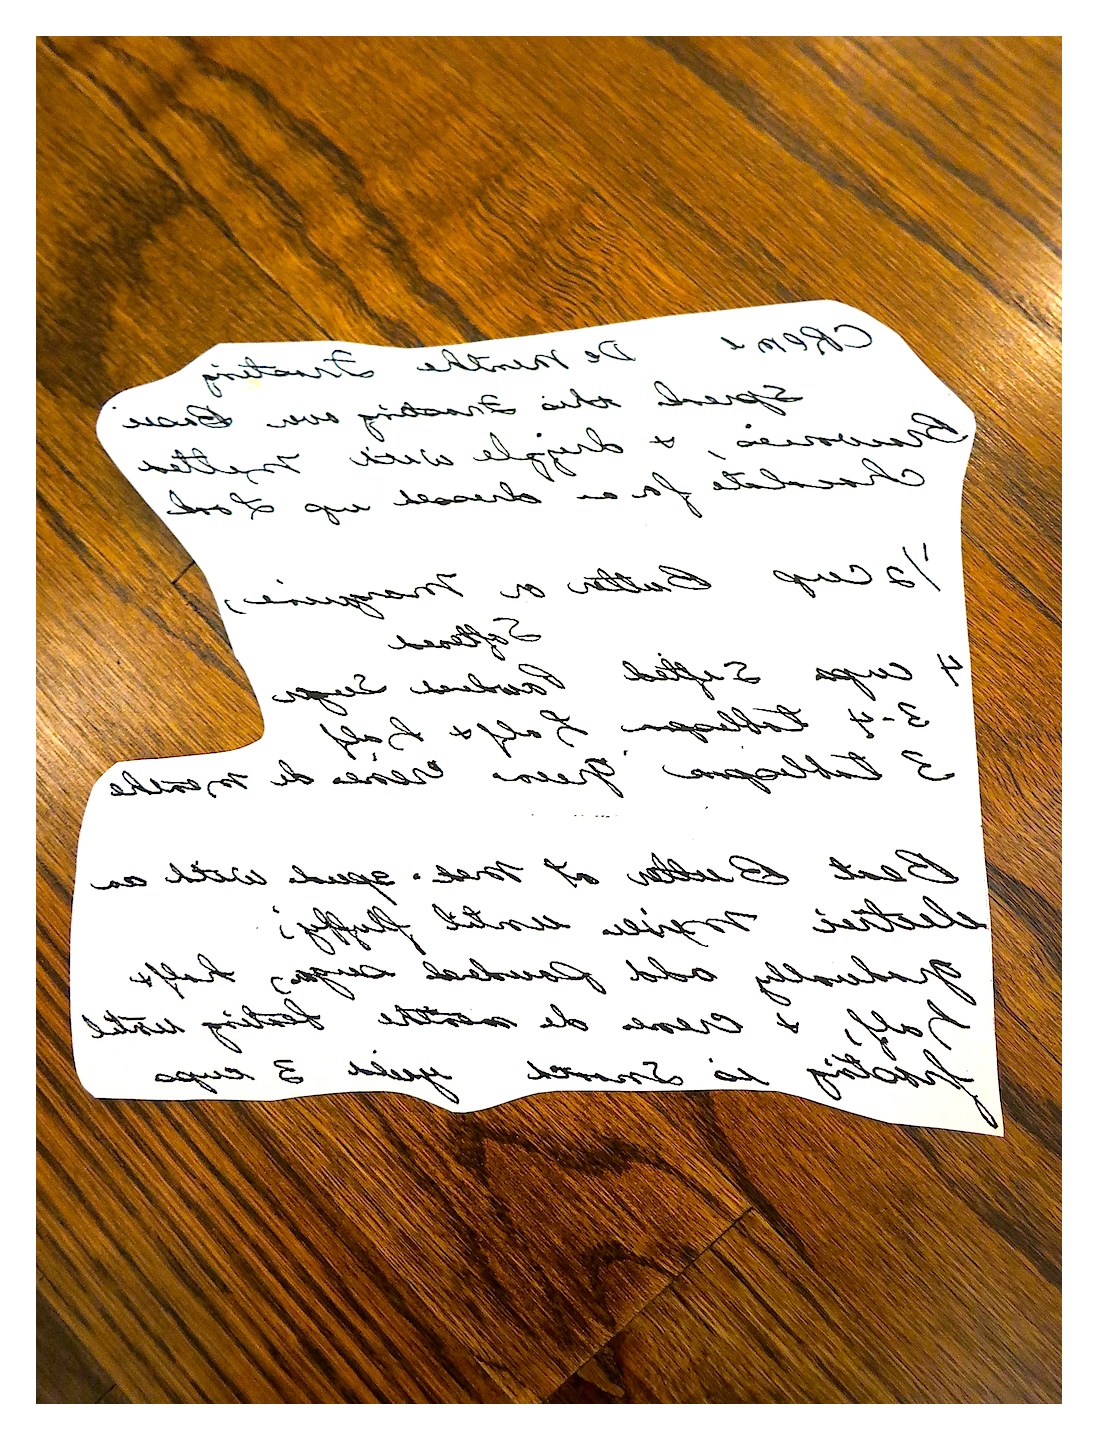 CREME De Menthe Frosting
Spread this Frosting over Basic
Brownies, & drizzle with Melted
Chocolate for a dressed up Look
1/2 cup Butter or Margarine,
Softened
4 cups Sifted Powdered Sugar
3-4 tablespoon half & half
3 tablespoons green creme de menthe
Beat Butter at med. speed with an
electric Mixer until fluffy;
gradually add powdered sugar, half &
half, & creme de menthe beating until
frosting is Smooth yield 3 cups